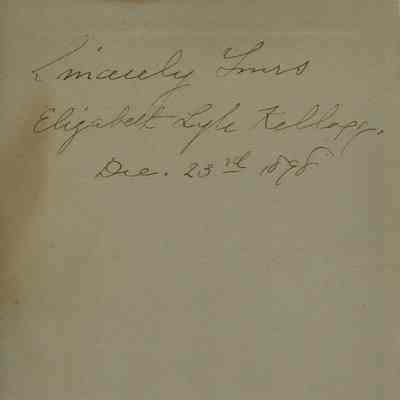 Sincerely Yours
Elizabeth Lyle Kellogg.
Dec. 23rd 1898